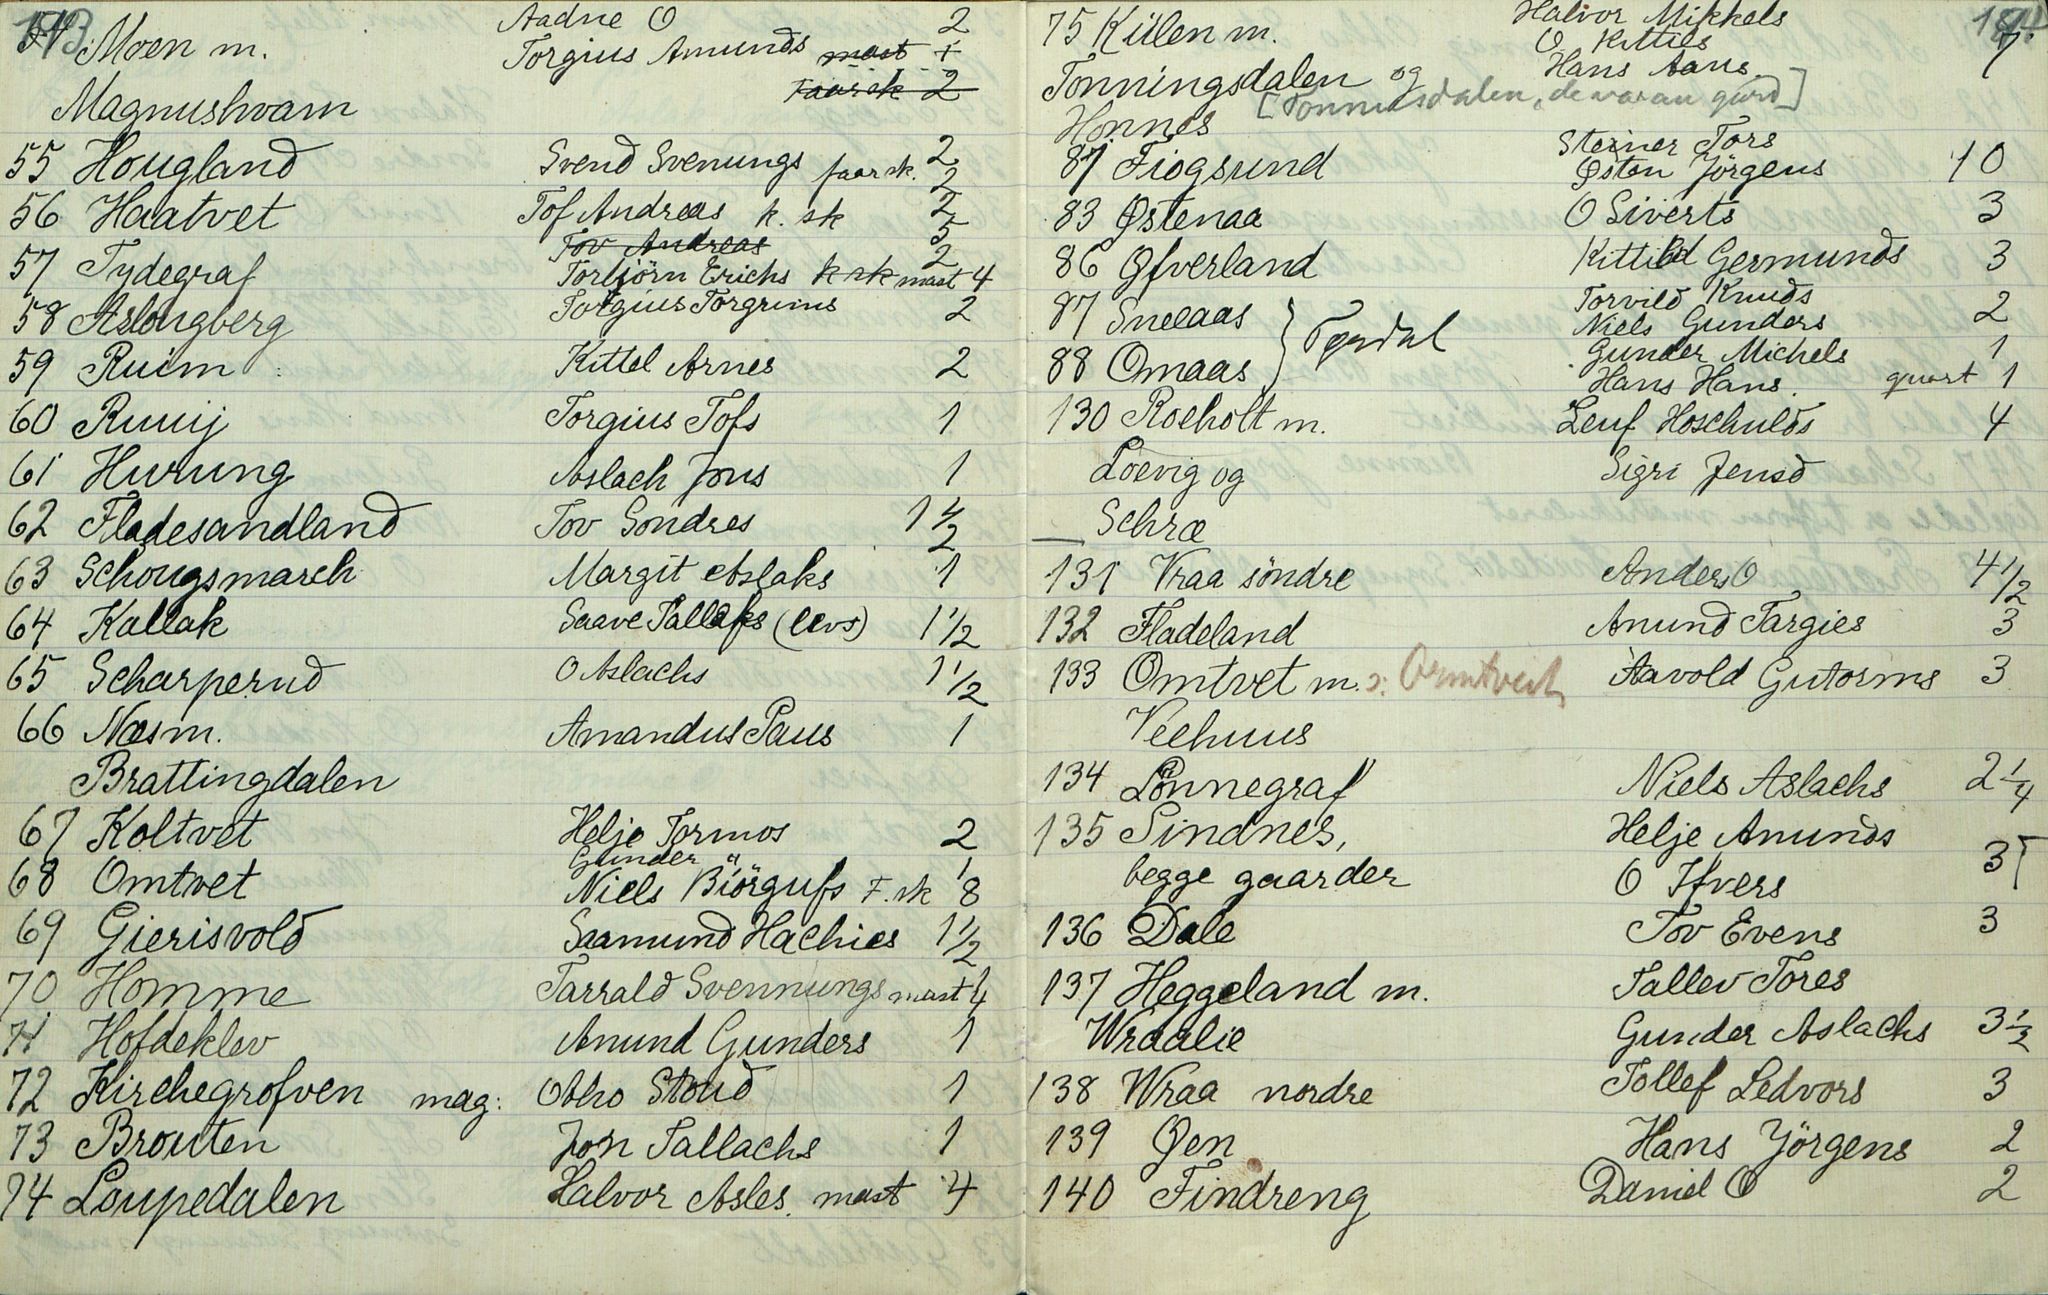 Aadne O 2
54 Moen m. Torgius Amunds mast +
Faar sk 2
Magnushvam
55 Hougland Svend Svenungs faar sk. 2 2
56 Haatvet Tof Andreas k. sk 2 5
Tov Andreas 2
57 Tydegraf Torbjörn Erichs k sk mast 4
58 Aslougberg Torgius Torgrims 2
59 Ruim Kittel Arnes 2
60 Ruuij Torgius Tofs 1
61 Hurung Aslach Jons 1
62 Fladesandland Tov Sondres 1 1/2
63 Schougsmarch Margit Aslaks 1
64 Kallak Saave Tallefs (Levs) 1 1/2
65 Scharperud O Aslachs 1 1/2
66 Næs m. Amandus Paus 1
Brattingdalen
67 Koltvet Helje Tormos 2
Gunder " 1
68 Omtvet Niels Biörgufs F. sk 8
69 Gierisvold Saamund Hachies 1 1/2
70 Homme Tarrald Svennungs mast 4
71 Hofdeklev Anund Gunders 1
72 Kirchegrofven mag: Otho Stoud 1
73 Brouten Jon Tallachs 1
74 Loupedalen Halvor Asles. mast 4
Halvor Mikkels
75 Kiilen m. O Kittils 7
Tonningsdalen og Hans Aans
[Tonnusdalen, de var au gard]
Honnes
81 Fiogsund Steiner Tors
Østen Jörgens 10
83 Østenaa O Siverts 3
86 Øfverland Kittild Germunds 3
87 Snelaas Torvild Knuds
Niels Gunders 2
Tørdal
88 Omaas Gunder Michels 1
Hans Hans. quart 1
130 Roeholt m. Leuf Hoschulds 4
Loevig og Sigri Jensd
Schræ
131 Vraa söndre Anders O 4 1/2
132 Fladeland Anund Targies 3
133 Omtvet m. ɔ: Ormtveit Aavold Gutorms 3
Veehuus
134 Lönnegraf Niels Aslachs 2 1/4
135 Sindnes, Helje Anunds
begge gaarder O Ifvers 3
136 Dale Tov Evens 3
137 Heggeland m. Tallev Tores
Wraalie Gunder Aslachs 3 1/2
138 Wraa nordre Tollef Ledvors 3
139 Øen Hans Jörgens 2
140 Findreng Daniel O 2